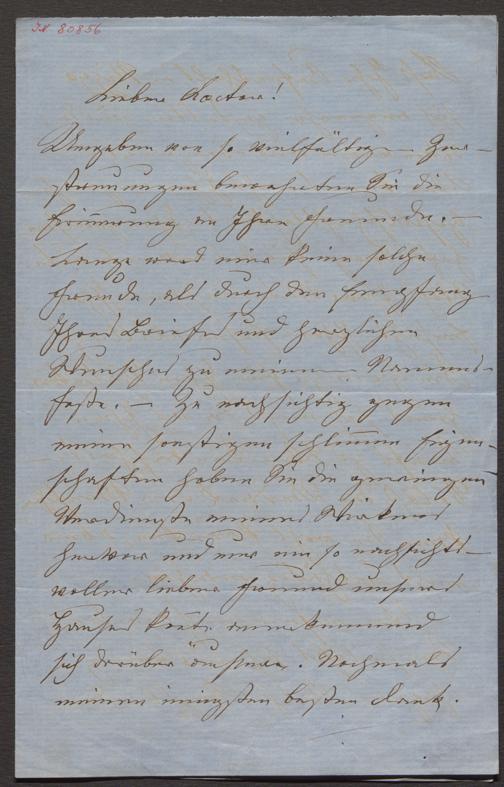 IN 80856
Lieber Doctor!
Umgeben von so vielfältigen Zer-
streuungen bewahrten Sie die
Erinnerung an Ihre Freunde. —
Lange ward mir keine solche
Freude, als durch den Empfang
Ihres Briefes und herzlichen
Wunsches zu meinem Namens-
feste. — Zu nachsichtig gegen
meine sonstigen schlimmen Eigen-
schaften haben Sie die geringen
Verdienste meines Wirkens
hervor und nur ein so nachsichts-
voller lieber Freund unseres
Hauses konnte anerkennend
sich darüber äußern. Nochmals
meinen innigsten besten Dank.